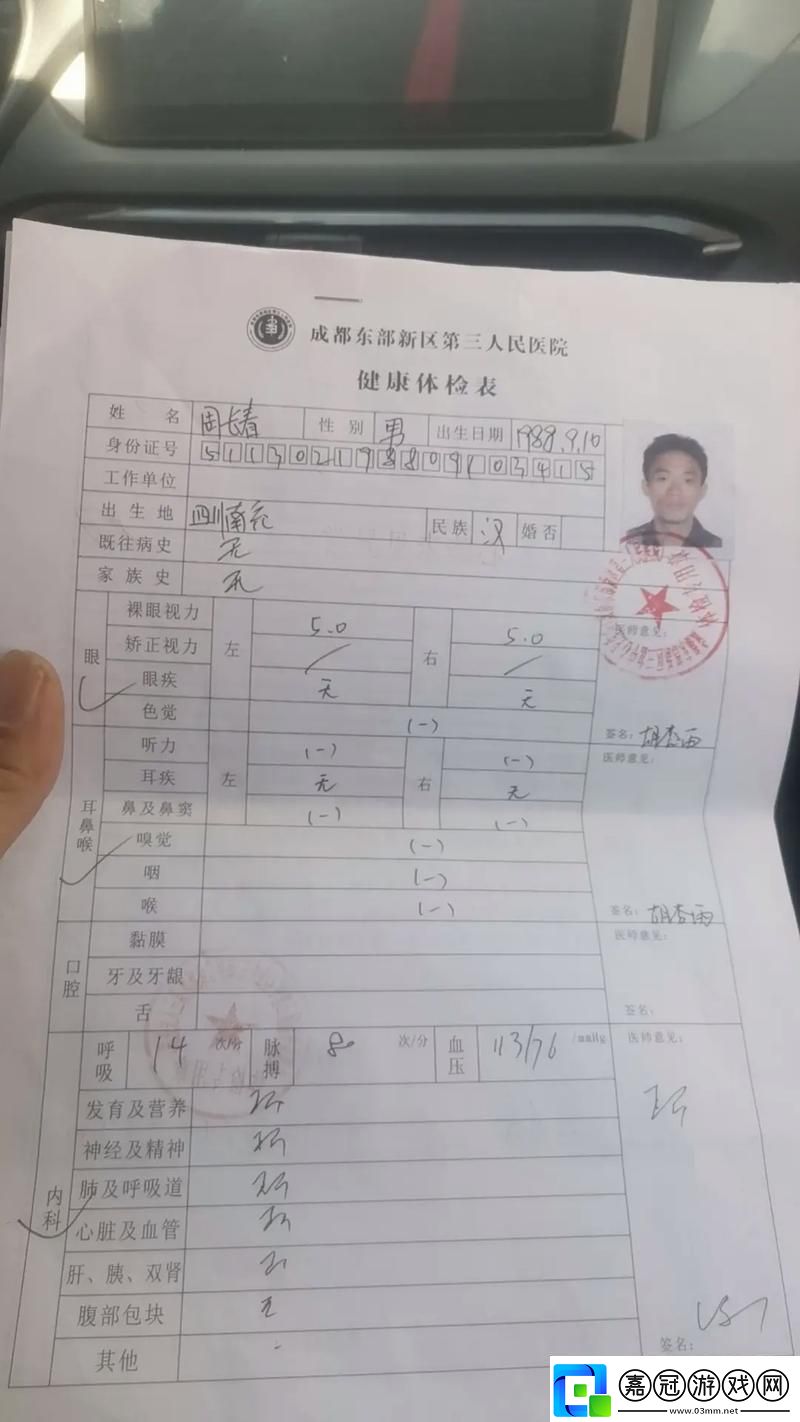 成都东部新区第三人民医院
健康体检表
姓名 周长春 性别 男 出生日期 1988.9.10
身份证号 511302198809103415
工作单位
出生地 四川南充 民族 汉 婚否
既往病史 无
家族史 无
眼 裸眼视力 左 5.0 右 5.0 医师意见:
矫正视力 / /
眼疾 无 无
色觉 (-) 签名: 胡杏雨
耳鼻喉 听力 左 (-) 右 (-) 医师意见:
耳疾 无 无
鼻及鼻窦 (-) (-)
嗅觉 (-)
咽 (-)
喉 (-) 签名: 胡杏雨
口腔 黏膜 医师意见:
牙及牙龈
舌 签名:
内科 呼吸 14 次/分 脉搏 80 次/分 血压 113/76 /mmHg 医师意见:
发育及营养
神经及精神
肺及呼吸道
心脏及血管
肝、胰、双肾
腹部包块 无
其他 -
签名:
嘉冠游戏网
www.03mm.net